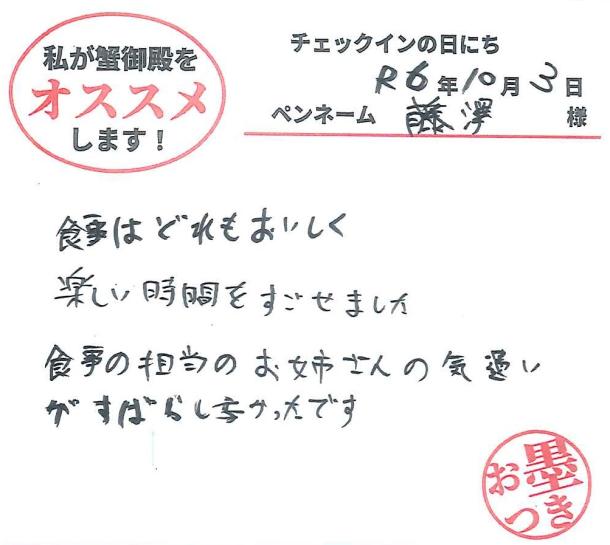 私が蟹御殿を
オススメ
します！
チェックインの日にち
R6年10月3日
ペンネーム 藤澤 様
食事はどれもおいしく
楽しい時間をすごせました
食事の担当のお姉さんの気遣い
がすばらしかったです
お墨
つき